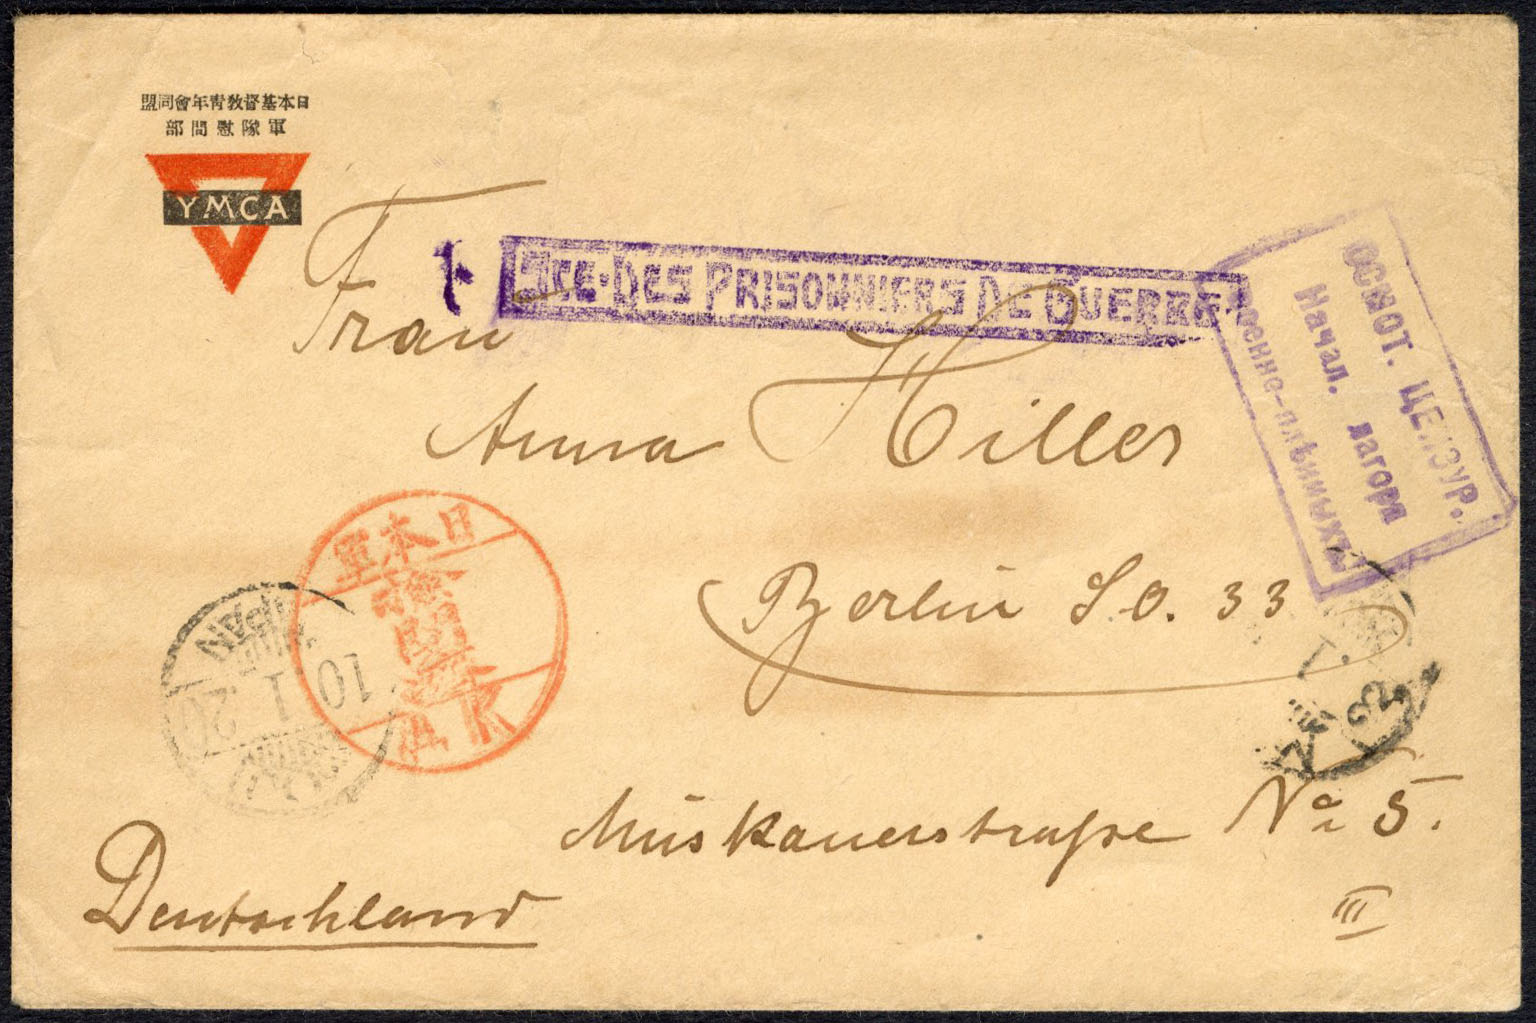 日本基督敎靑年會同盟
軍隊慰問部
YMCA
SCE·DES PRISONNIERS DE GUERRE
ОСМОТ. ЦЕНЗУР.
Начал. лагоря
Военно-плѣнныхъ
Frau
Anna Hiller
Berlin S.O. 33
Muskauerstraße No 5.
III
Deutschland
日本軍
檢閱濟
JAPAN
10. 1. 20